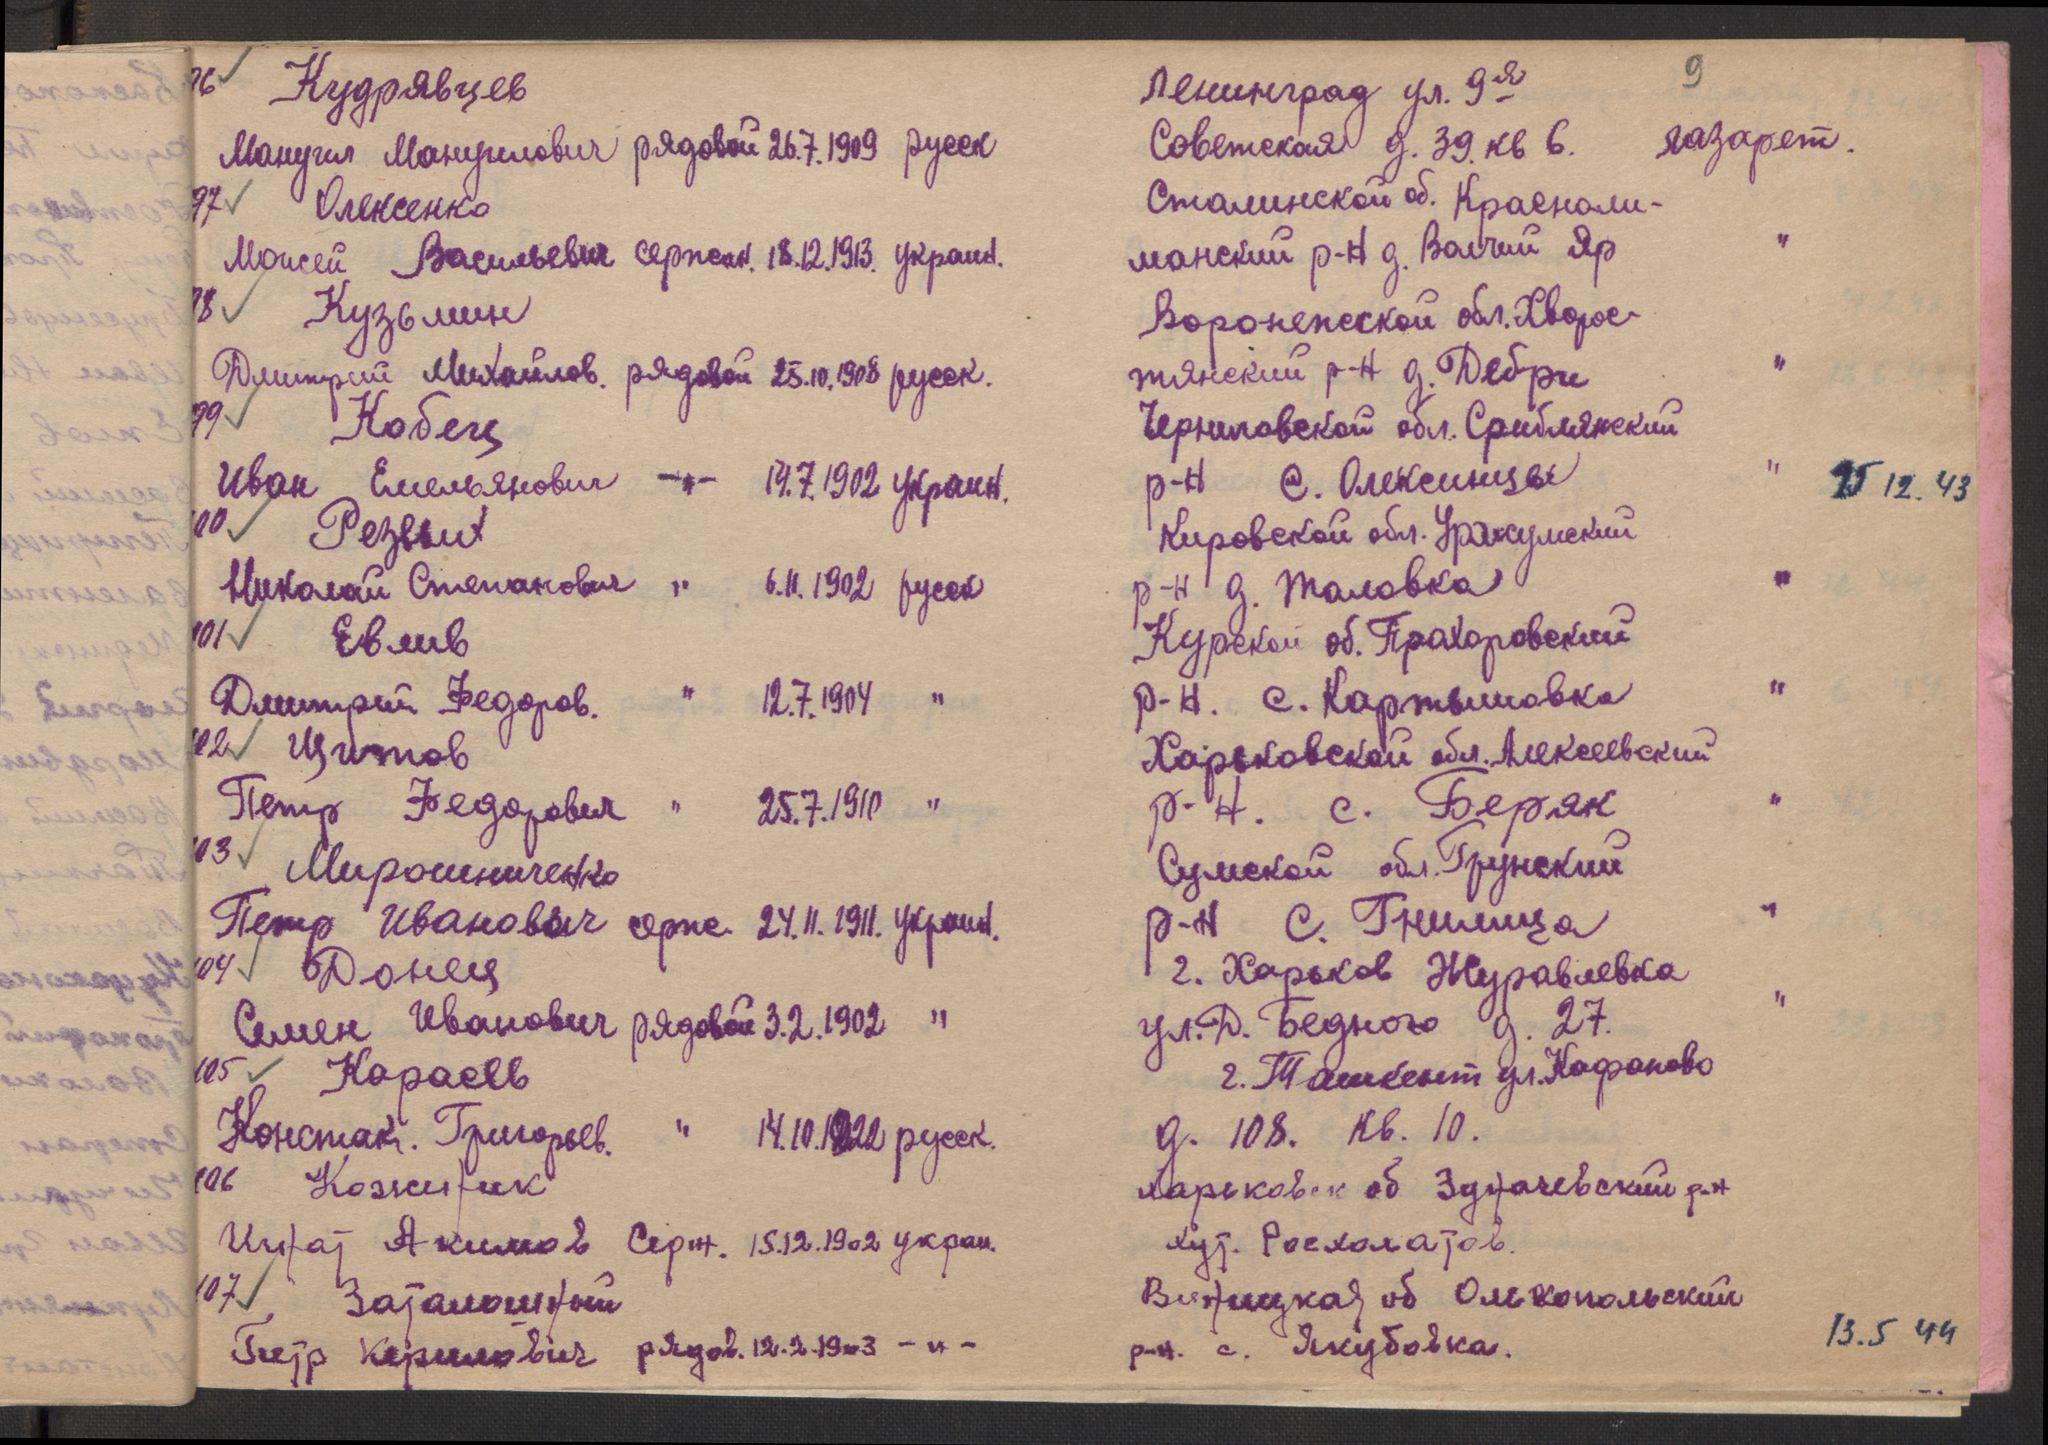 9
96 ✓ Кудрявцев Ленинград ул. 9я
Мануил Мануилович рядовой 26.7.1909 русск Советская д. 39. кв 6. лазарет.
97 ✓ Олексенко Сталинской об. Краснoли-
Моисей Васильевич сержан. 18.12.1913. украин. манский р-н д. Волчий Яр "
98 ✓ Кузьмин Воронежской обл. Хворос-
Дмитрий Михайлов. рядовой 25.10.1908 русск. тянский р-н д. Дебри "
99 ✓ Кобец Черниговской обл. Сриблянский
Иван Емельянович -"- 14.7.1902 украин. р-н с. Олексинцы " 25 12. 43
100 ✓ Резвых Кировской обл. Уржумский
Николай Степанович " 6.11.1902 русск р-н д. Таловка "
101 ✓ Евлив Курской об. Прохоровский
Дмитрий Федоров. " 12.7.1904 " р-н. с. Картышовка "
102 ✓ Щитов Харьковской обл. Алексеевский
Петр Федорович " 25.7.1910 " р-н. с. Беряк "
103 ✓ Мирошниченко Сумской обл. Грунский
Петр Иванович серж. 24.11.1911. украин. р-н с. Гнилица "
104 ✓ Донец г. Харьков Журавлевка
Семен Иванович рядовой 3.2.1902 " ул. Д. Бедного д. 27. "
105 ✓ Караев г. Ташкент ул. Кафаново
Констан. Григорьев. " 14.10.1922 русск. д. 108. кв. 10.
106 Кожиник Харьковск об Здначевский р-н
Игнат Акимов Серж. 15.12.1902 украи. хут. Росхолатов.
107 ✓ Заталошный Винницкая об Ольгопольский
Петр Кирилович рядов. 12.2.1903 -"- р-н. с. Якубовка. 13.5 44